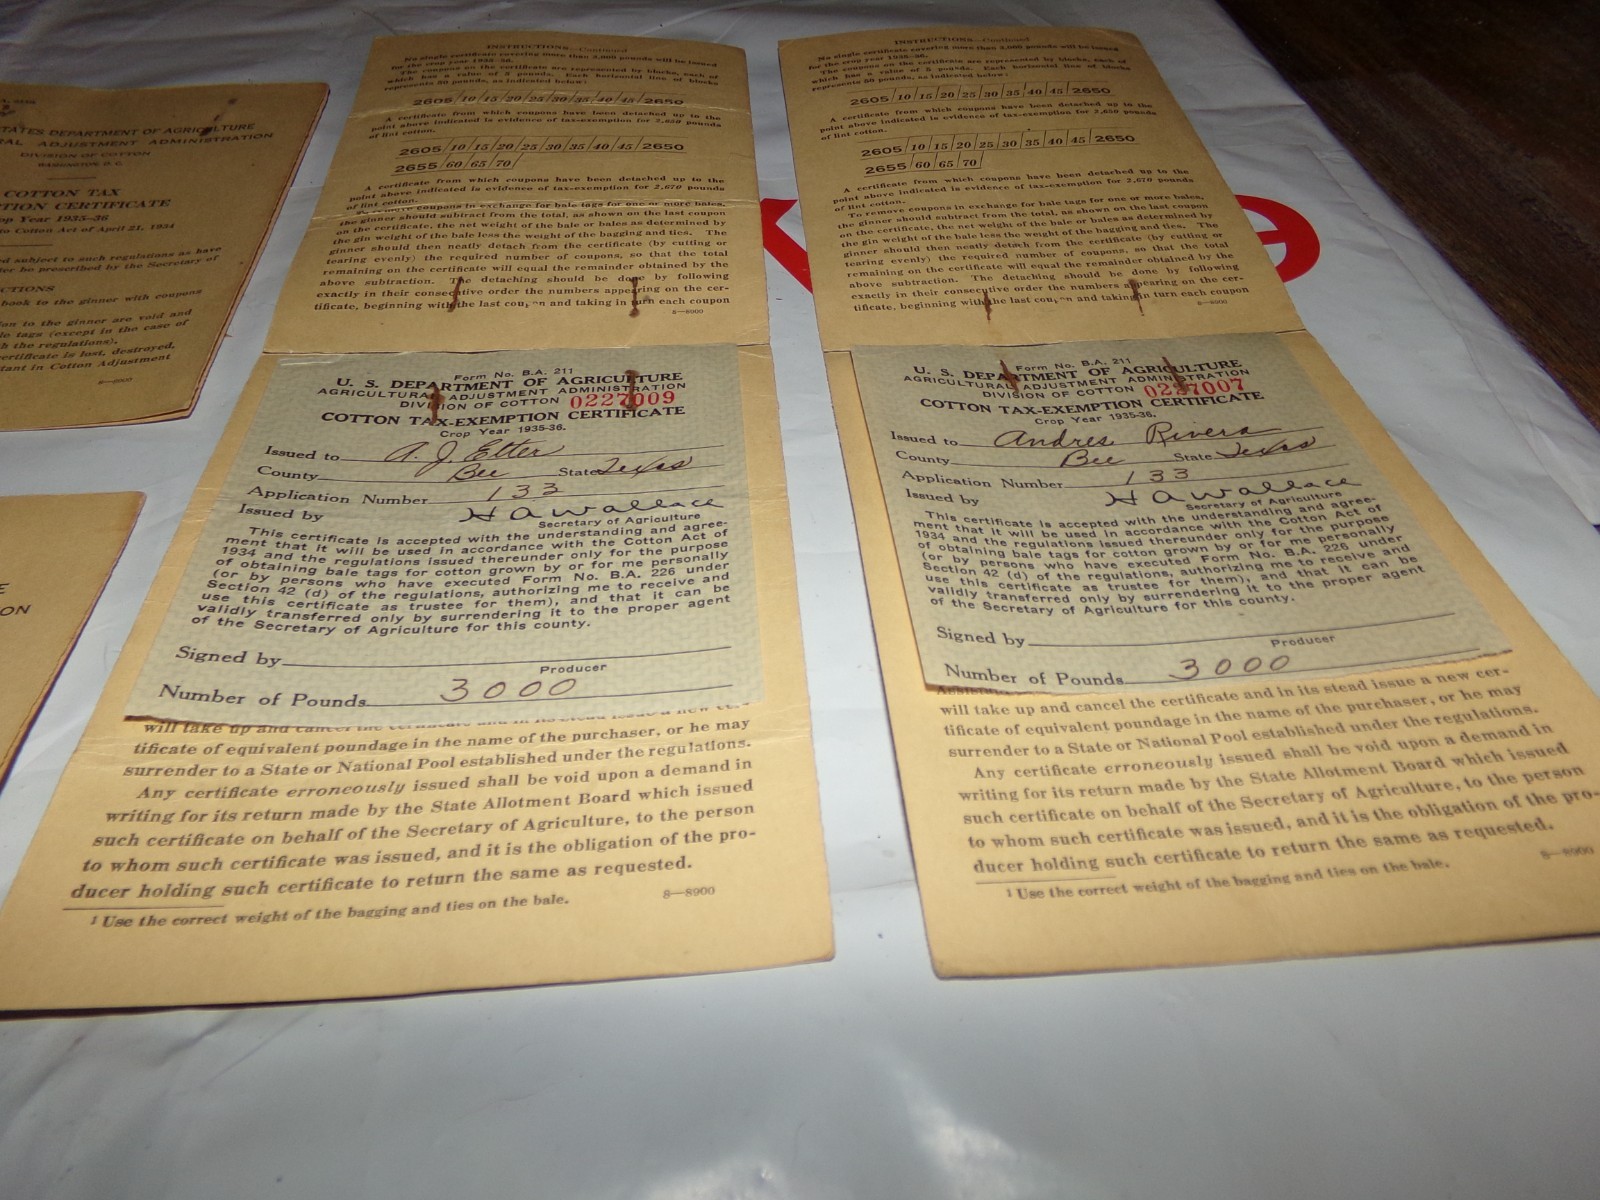 STATES DEPARTMENT OF AGRICULTURE
ADJUSTMENT ADMINISTRATION
DIVISION OF COTTON
WASHINGTON, D. C.
COTTON TAX
TION CERTIFICATE
Crop Year 1935-36
to Cotton Act of April 21, 1934
ed subject to such regulations as have
be prescribed by the Secretary of
CTIONS
book to the ginner with coupons
ion to the ginner are void and
tags (except in the case of
the regulations).
certificate is lost, destroyed,
tant in Cotton Adjustment
8—8900
E
ON
INSTRUCTIONS—Continued
No single certificate covering more than 3,000 pounds will be issued
for the crop year 1935-36.
The coupons on the certificate are represented by blocks, each of
which has a value of 5 pounds. Each horizontal line of blocks
represents 50 pounds, as indicated below:
2605 10 15 20 25 30 35 40 45 2650
A certificate from which coupons have been detached up to the
point above indicated is evidence of tax-exemption for 2,650 pounds
of lint cotton.
2605 10 15 20 25 30 35 40 45 2650
2655 60 65 70
A certificate from which coupons have been detached up to the
point above indicated is evidence of tax-exemption for 2,670 pounds
of lint cotton.
To remove coupons in exchange for bale tags for one or more bales,
the ginner should subtract from the total, as shown on the last coupon
on the certificate, the net weight of the bale or bales as determined by
the gin weight of the bale less the weight of the bagging and ties. The
ginner should then neatly detach from the certificate (by cutting or
tearing evenly) the required number of coupons, so that the total
remaining on the certificate will equal the remainder obtained by the
above subtraction. The detaching should be done by following
exactly in their consecutive order the numbers appearing on the cer-
tificate, beginning with the last coupon and taking in turn each coupon
8—8900
Form No. B.A. 211
U. S. DEPARTMENT OF AGRICULTURE
AGRICULTURAL ADJUSTMENT ADMINISTRATION
DIVISION OF COTTON 0227009
COTTON TAX-EXEMPTION CERTIFICATE
Crop Year 1935-36.
Issued to A. J. Etter
County Bee State Texas
Application Number 133
Issued by H A Wallace
Secretary of Agriculture
This certificate is accepted with the understanding and agree-
ment that it will be used in accordance with the Cotton Act of
1934 and the regulations issued thereunder only for the purpose
of obtaining bale tags for cotton grown by or for me personally
(or by persons who have executed Form No. B.A. 226 under
Section 42 (d) of the regulations, authorizing me to receive and
use this certificate as trustee for them), and that it can be
validly transferred only by surrendering it to the proper agent
of the Secretary of Agriculture for this county.
Signed by
Producer
Number of Pounds 3000
will take up and cancel the certificate and in its stead issue a new cer-
tificate of equivalent poundage in the name of the purchaser, or he may
surrender to a State or National Pool established under the regulations.
Any certificate erroneously issued shall be void upon a demand in
writing for its return made by the State Allotment Board which issued
such certificate on behalf of the Secretary of Agriculture, to the person
to whom such certificate was issued, and it is the obligation of the pro-
ducer holding such certificate to return the same as requested.
8—8900
1 Use the correct weight of the bagging and ties on the bale.
INSTRUCTIONS—Continued
No single certificate covering more than 3,000 pounds will be issued
for the crop year 1935-36.
The coupons on the certificate are represented by blocks, each of
which has a value of 5 pounds. Each horizontal line of blocks
represents 50 pounds, as indicated below:
2605 10 15 20 25 30 35 40 45 2650
A certificate from which coupons have been detached up to the
point above indicated is evidence of tax-exemption for 2,650 pounds
of lint cotton.
2605 10 15 20 25 30 35 40 45 2650
2655 60 65 70
A certificate from which coupons have been detached up to the
point above indicated is evidence of tax-exemption for 2,670 pounds
of lint cotton.
To remove coupons in exchange for bale tags for one or more bales,
the ginner should subtract from the total, as shown on the last coupon
on the certificate, the net weight of the bale or bales as determined by
the gin weight of the bale less the weight of the bagging and ties. The
ginner should then neatly detach from the certificate (by cutting or
tearing evenly) the required number of coupons, so that the total
remaining on the certificate will equal the remainder obtained by the
above subtraction. The detaching should be done by following
exactly in their consecutive order the numbers appearing on the cer-
tificate, beginning with the last coupon and taking in turn each coupon
8—8900
Form No. B.A. 211
U. S. DEPARTMENT OF AGRICULTURE
AGRICULTURAL ADJUSTMENT ADMINISTRATION
DIVISION OF COTTON 0227007
COTTON TAX-EXEMPTION CERTIFICATE
Crop Year 1935-36.
Issued to Andres Rivera
County Bee State Texas
Application Number 133
Issued by H A Wallace
Secretary of Agriculture
This certificate is accepted with the understanding and agree-
ment that it will be used in accordance with the Cotton Act of
1934 and the regulations issued thereunder only for the purpose
of obtaining bale tags for cotton grown by or for me personally
(or by persons who have executed Form No. B.A. 226 under
Section 42 (d) of the regulations, authorizing me to receive and
use this certificate as trustee for them), and that it can be
validly transferred only by surrendering it to the proper agent
of the Secretary of Agriculture for this county.
Signed by
Producer
Number of Pounds 3000
will take up and cancel the certificate and in its stead issue a new cer-
tificate of equivalent poundage in the name of the purchaser, or he may
surrender to a State or National Pool established under the regulations.
Any certificate erroneously issued shall be void upon a demand in
writing for its return made by the State Allotment Board which issued
such certificate on behalf of the Secretary of Agriculture, to the person
to whom such certificate was issued, and it is the obligation of the pro-
ducer holding such certificate to return the same as requested.
8—8900
1 Use the correct weight of the bagging and ties on the bale.